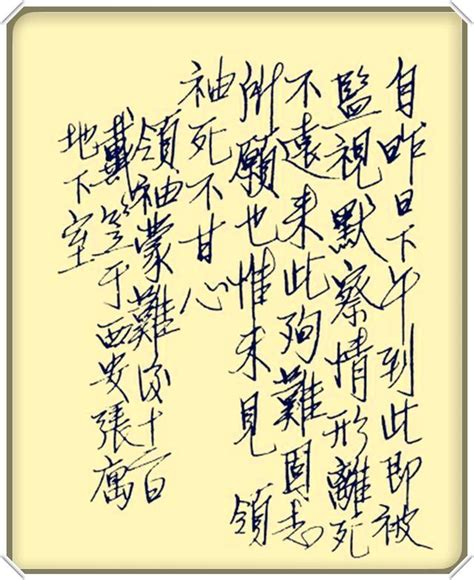 自昨日下午到此即被
監視默察情形離死
不遠来此殉難固志
所願也惟未見 領
袖死不甘心
領袖蒙難后十二日
戴笠于西安張寓
地下室